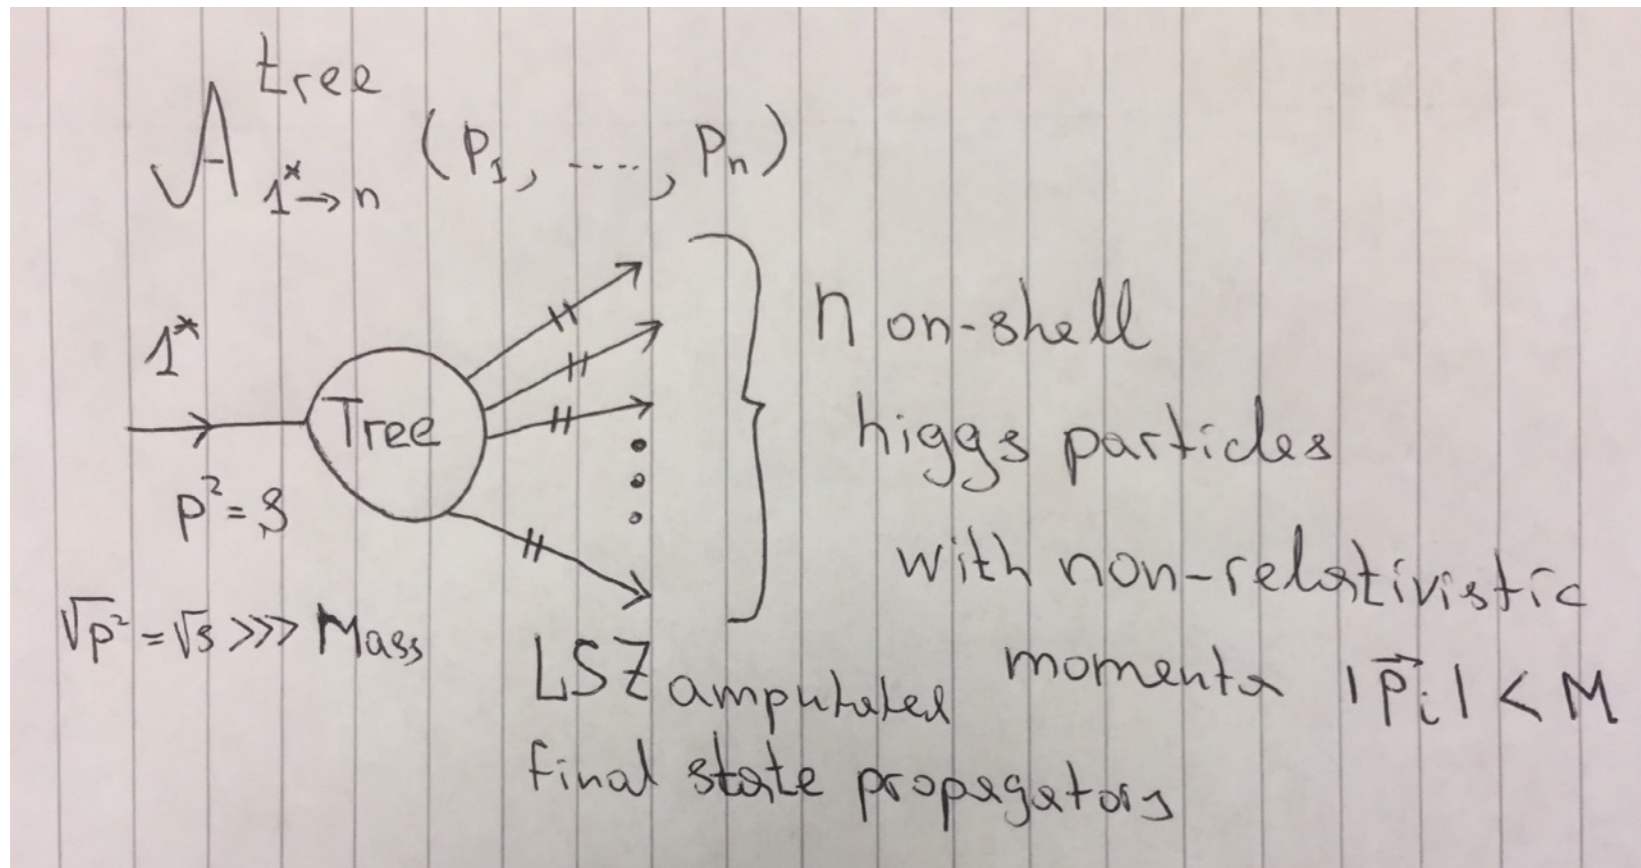 A^{tree}_{1^*→n} (p_1, ...., p_n)
1*
Tree
p² = s
√p² = √s >>> Mass
n on-shell
higgs particles
with non-relativistic
momenta |p⃗_i| < M
LSZ amputated
final state propagators